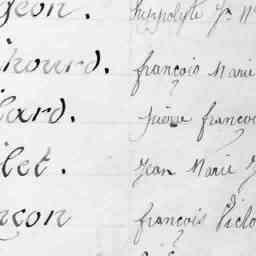 geon. hyppolyte Jn M
hourd. françois Marie
lard. Pierre françois
let. Jean Marie
nçon françois Victo